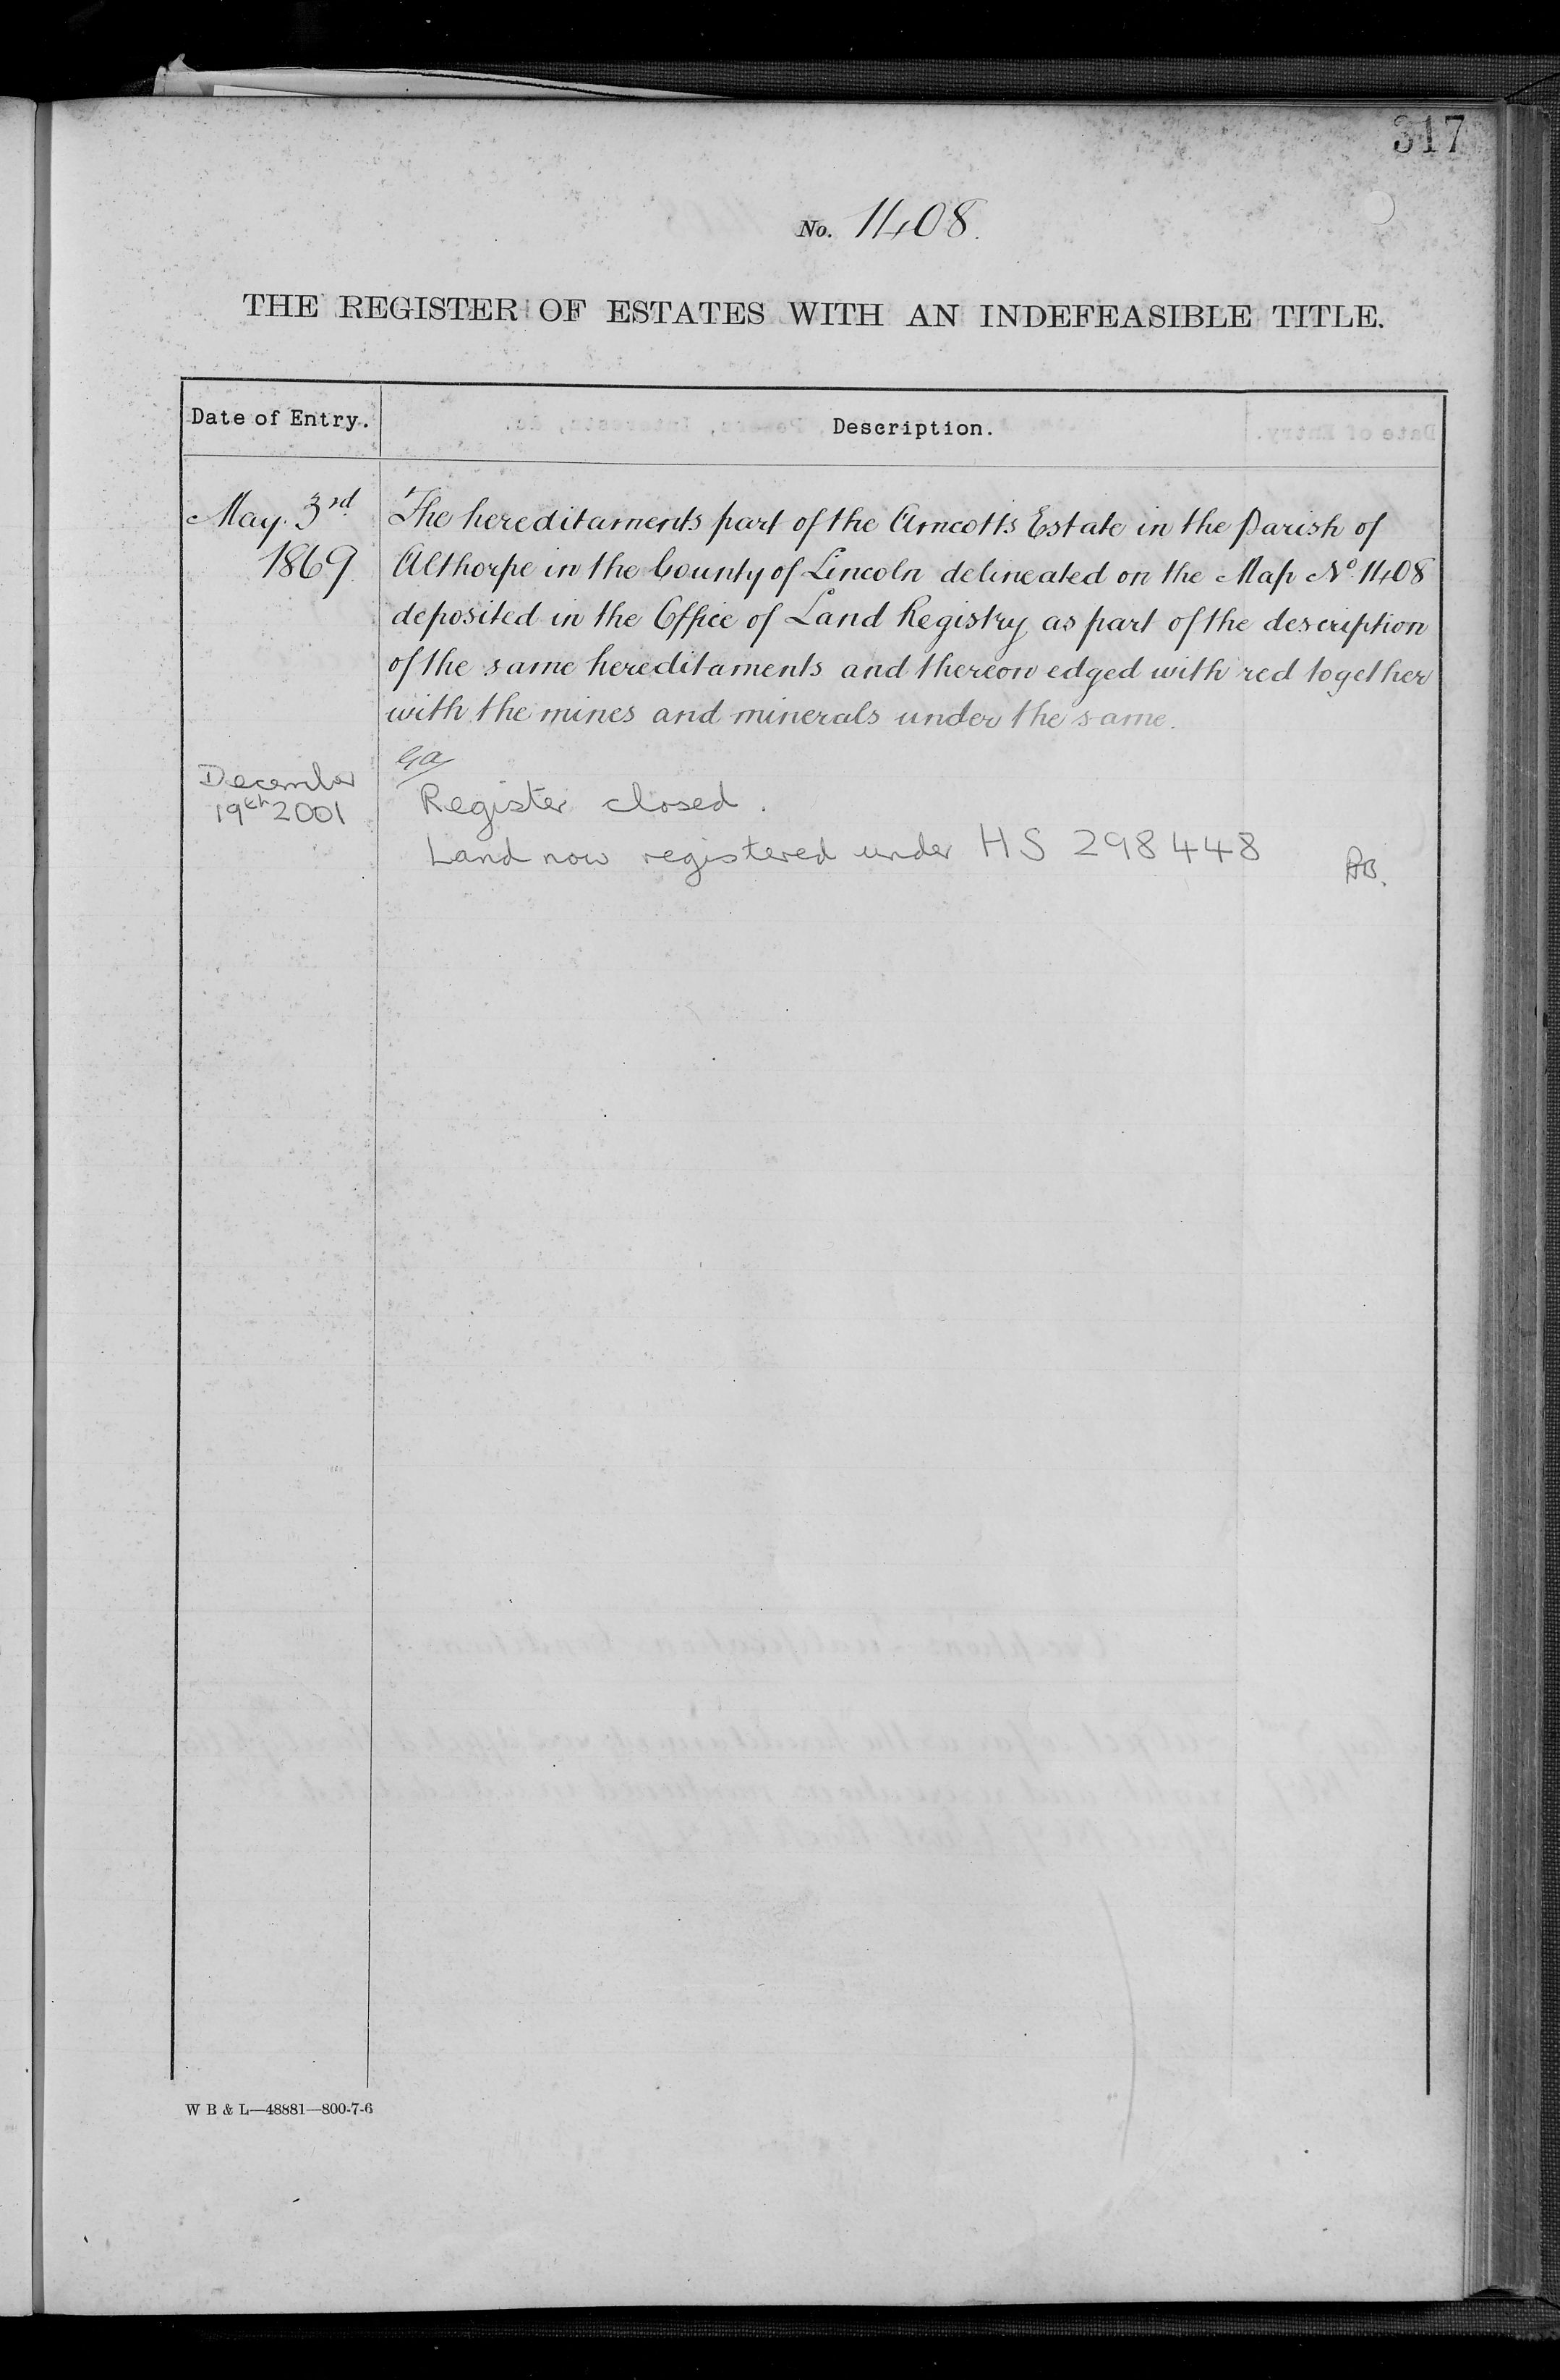 317
No. 1408.
THE REGISTER OF ESTATES WITH AN INDEFEASIBLE TITLE.
Date of Entry.
Description.
May. 3rd
1869
The hereditaments part of the Amcotts Estate in the Parish of
Althorpe in the County of Lincoln delineated on the Map No. 1408
deposited in the Office of Land Registry as part of the description
of the same hereditaments and thereon edged with red together
with the mines and minerals under the same.
December
19th 2001
Register closed.
Land now registered under HS 298448
W B & L—48881—800-7-6